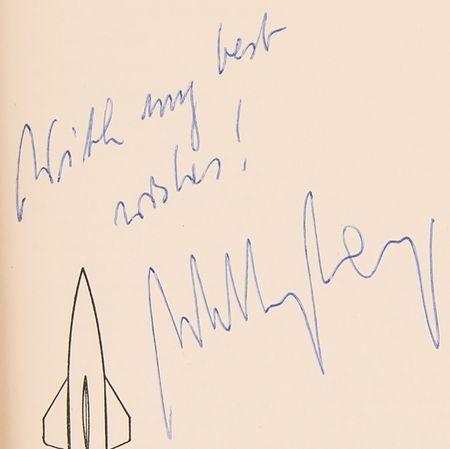 With my best
wishes!
Willy Ley